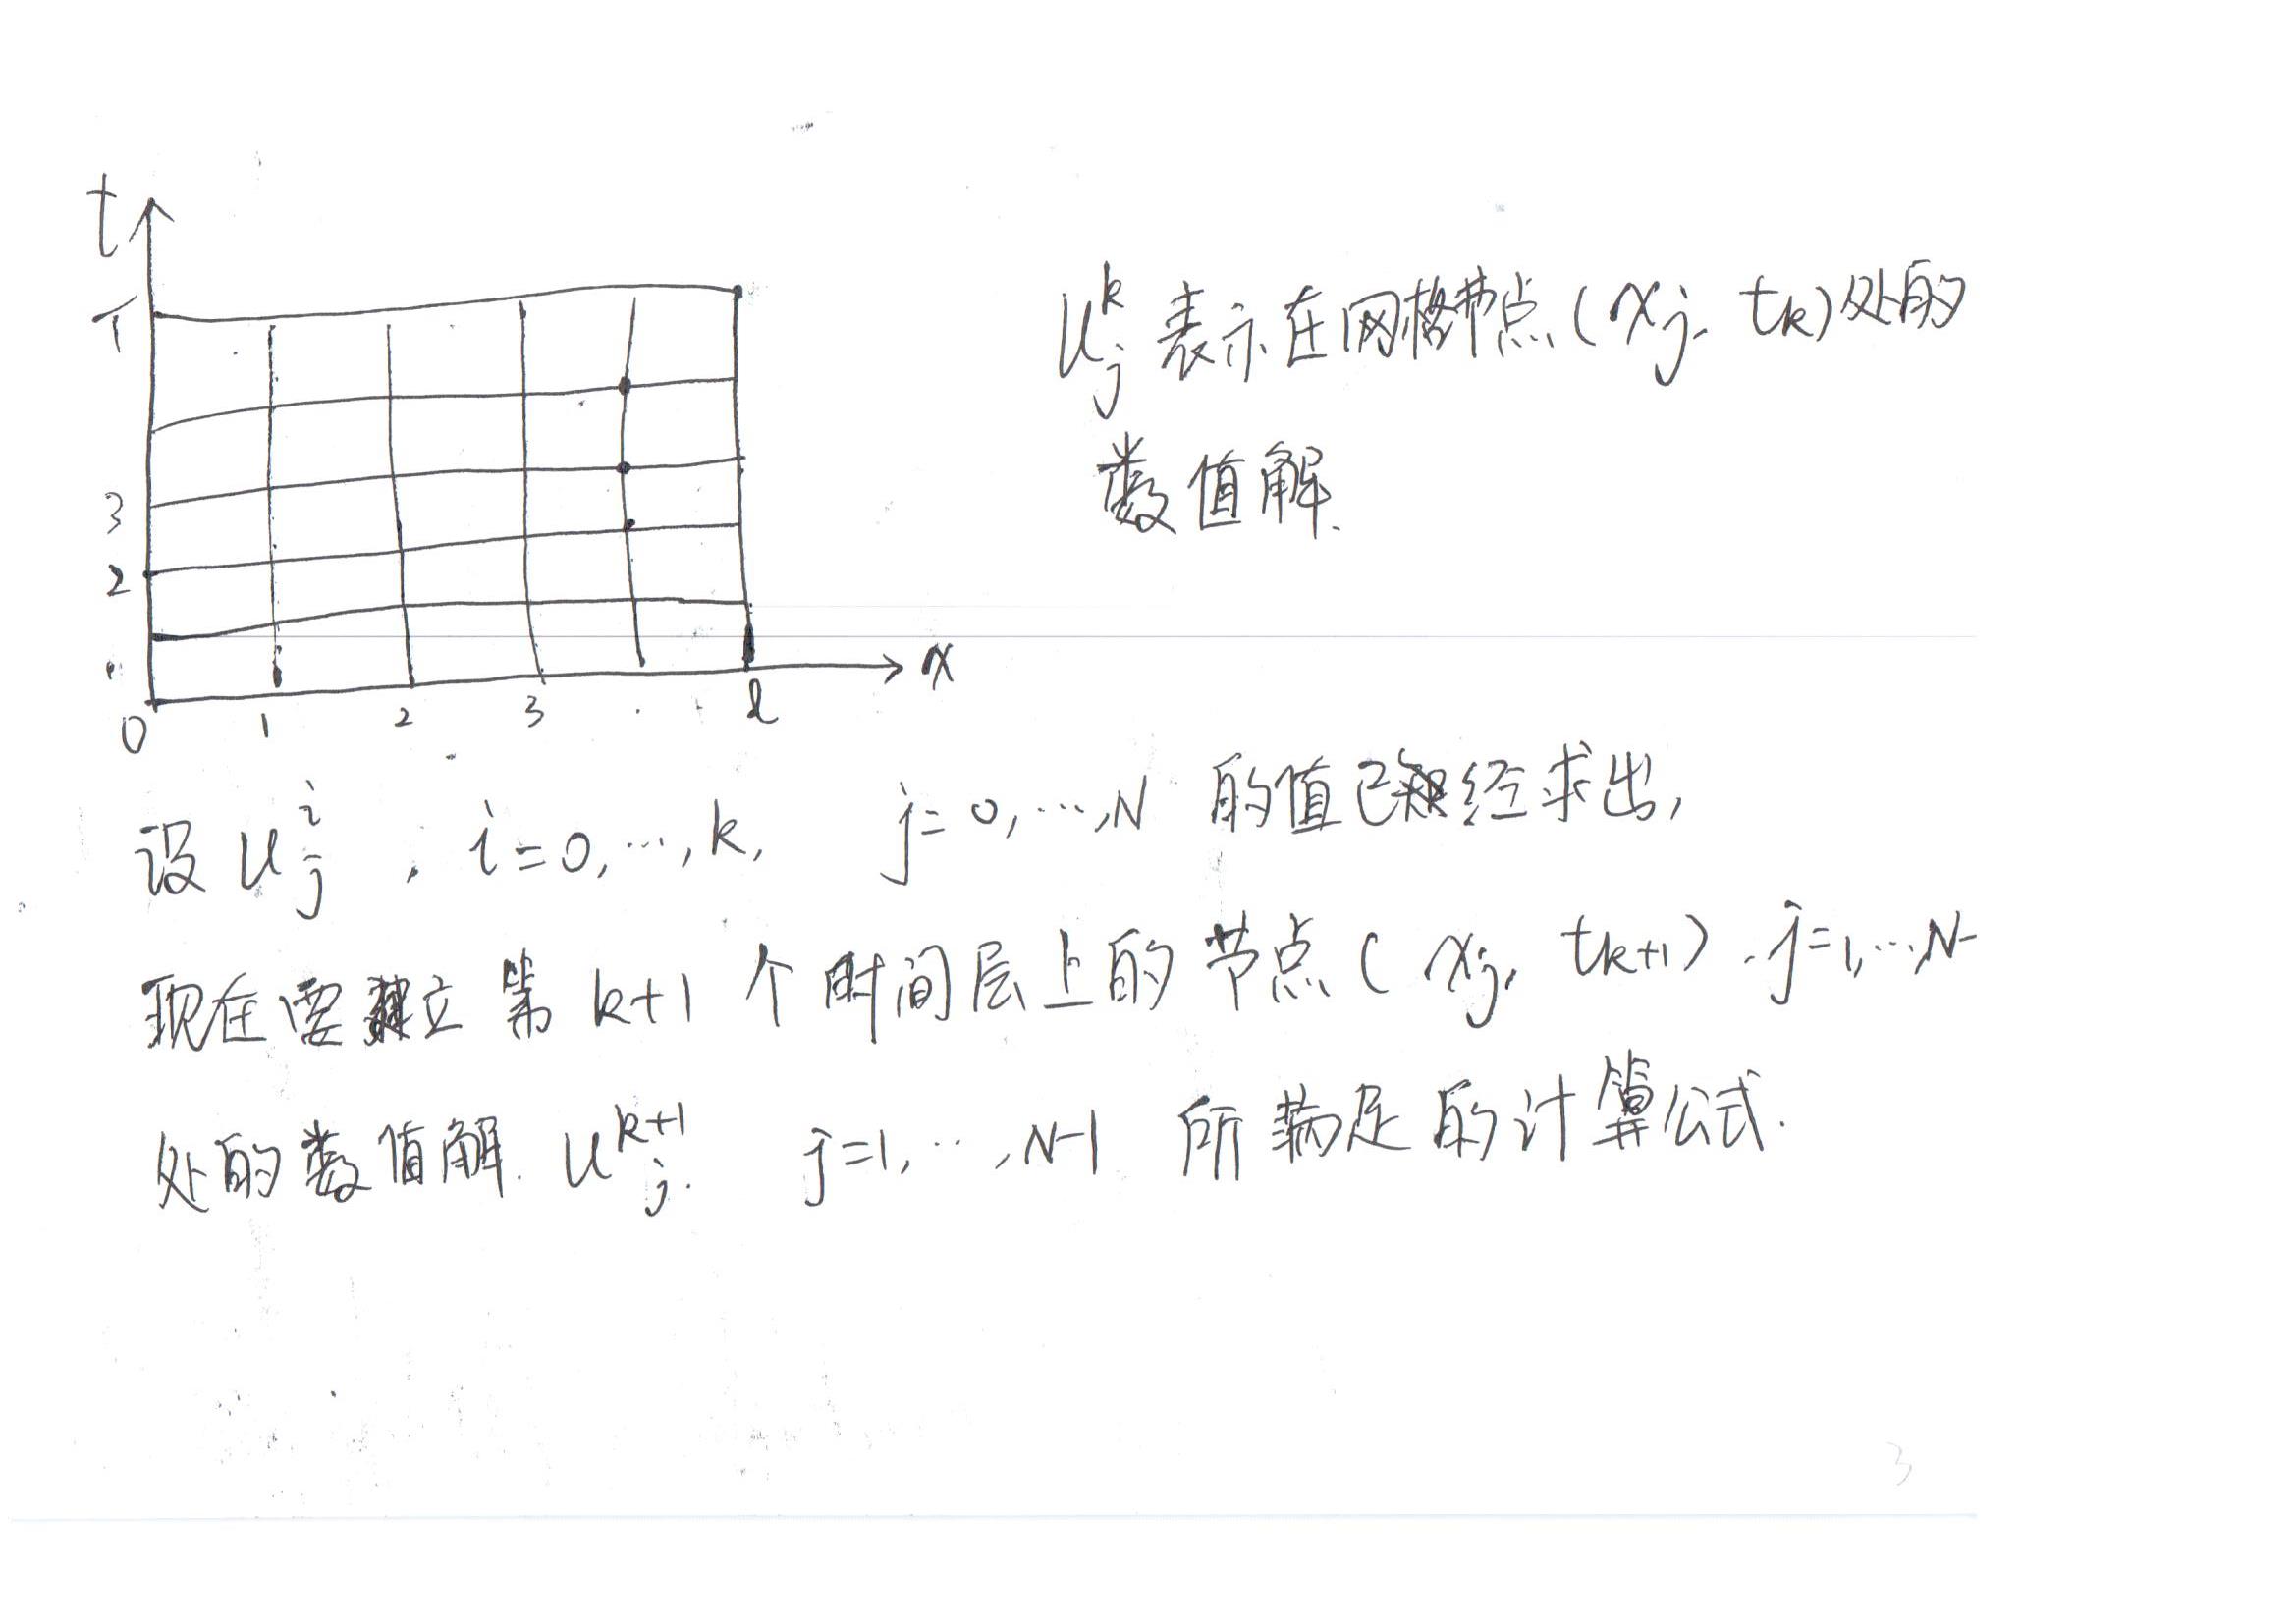 t
T
3
2
0 1 2 3 l x
u_j^k 表示在网格节点(x_j, t_k)处的
数值解.
设 u_j^i , i=0,…,k, j=0,…,N 的值已经求出,
现在要建立第 k+1 个时间层上的节点(x_j, t_{k+1}). j=1,…,N-
处的数值解. u_j^{k+1}. j=1,…,N-1 所满足的计算公式.
3